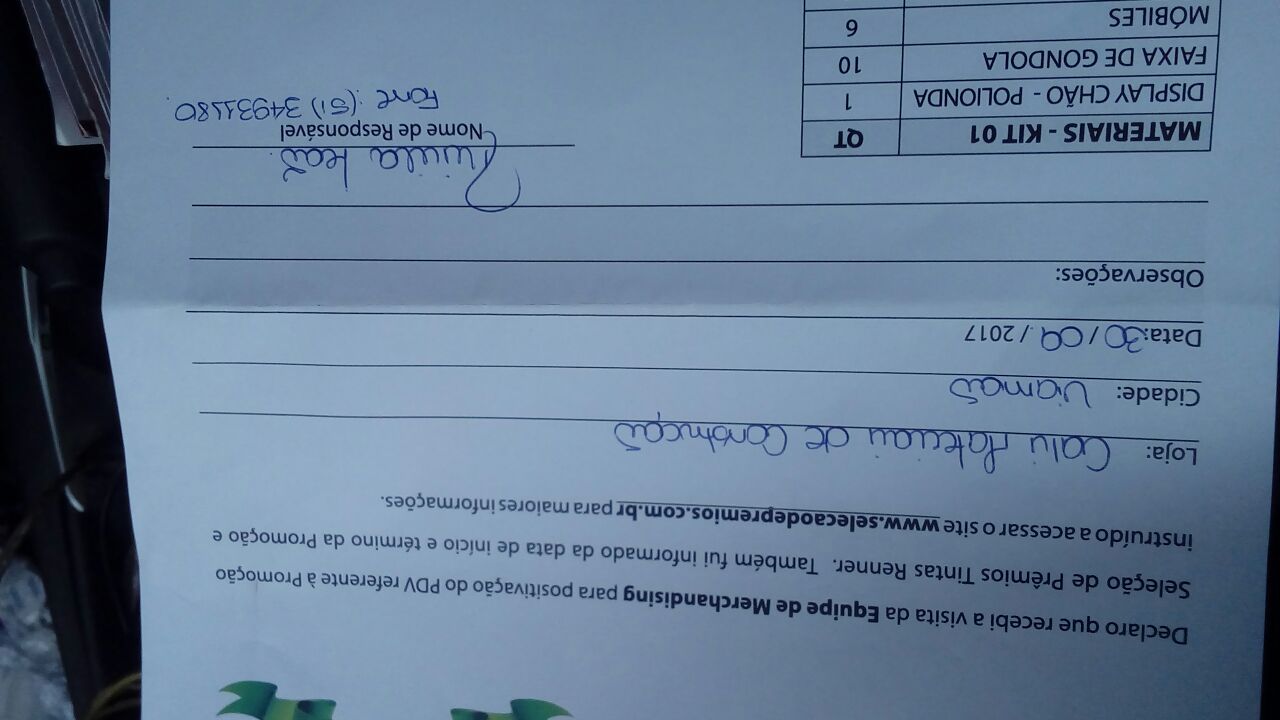 Declaro que recebi a visita da Equipe de Merchandising para positivação do PDV referente à Promoção
Seleção de Prêmios Tintas Renner. Também fui informado da data de início e término da Promoção e
instruído a acessar o site www.selecaodepremios.com.br para maiores informações.
Loja: Calu Materiais de Construção
Cidade: Viamão
Data: 30/09/2017
Observações:
Nome de Responsável
Fone: (51) 34931180.
MATERIAIS - KIT 01 QT
DISPLAY CHÃO - POLIONDA 1
FAIXA DE GONDOLA 10
MÓBILES 6